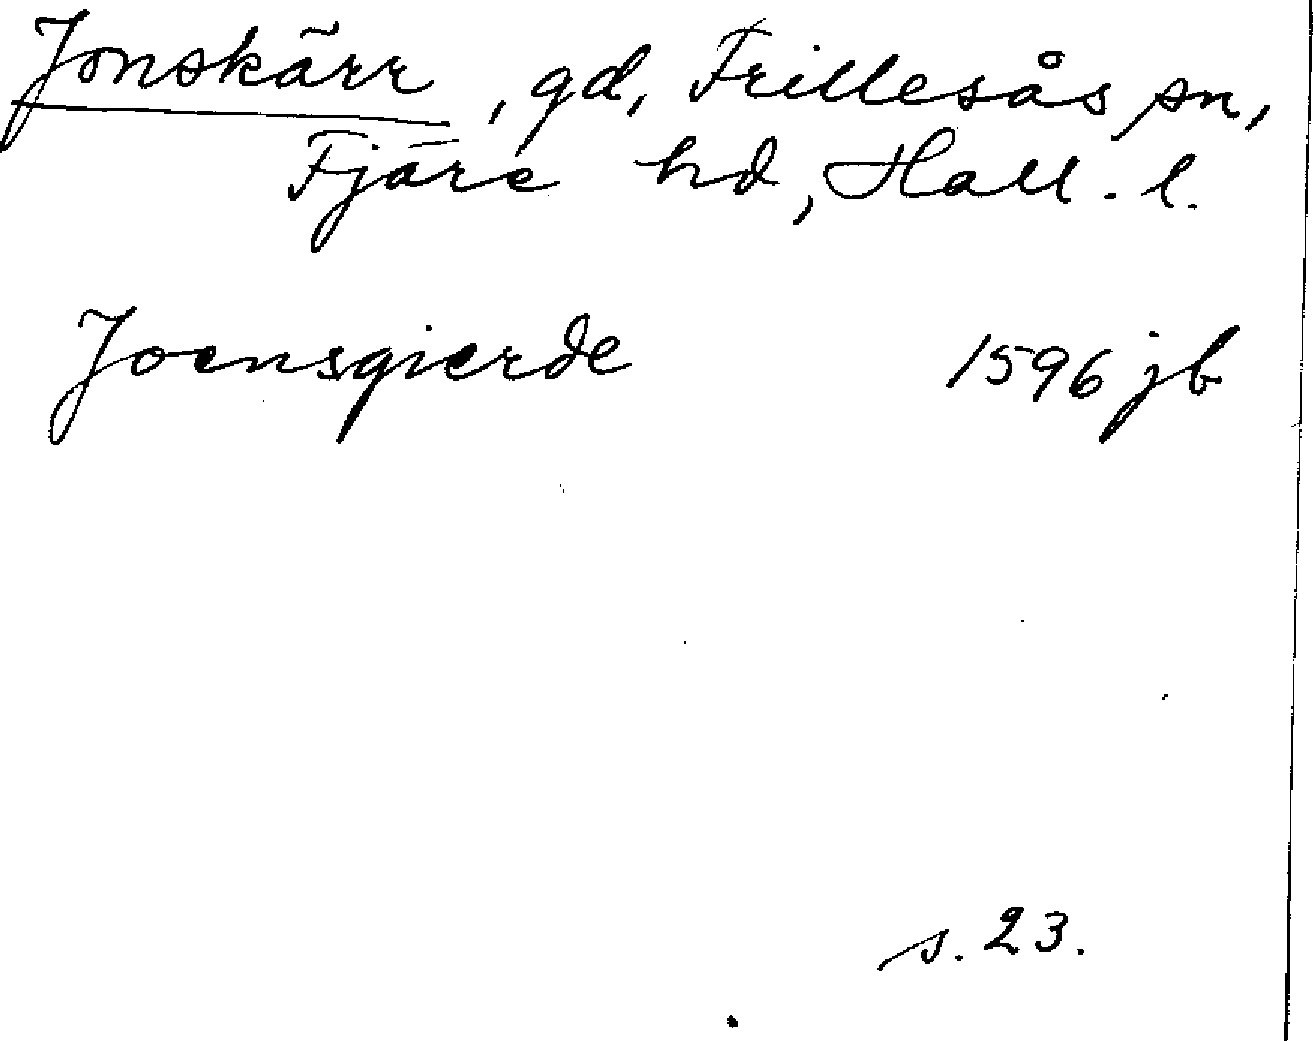 Jonskärr, gd, Frillesås sn,
Fjäre hd, Hall. l.
Joensgierde 1596 jb
s. 23.